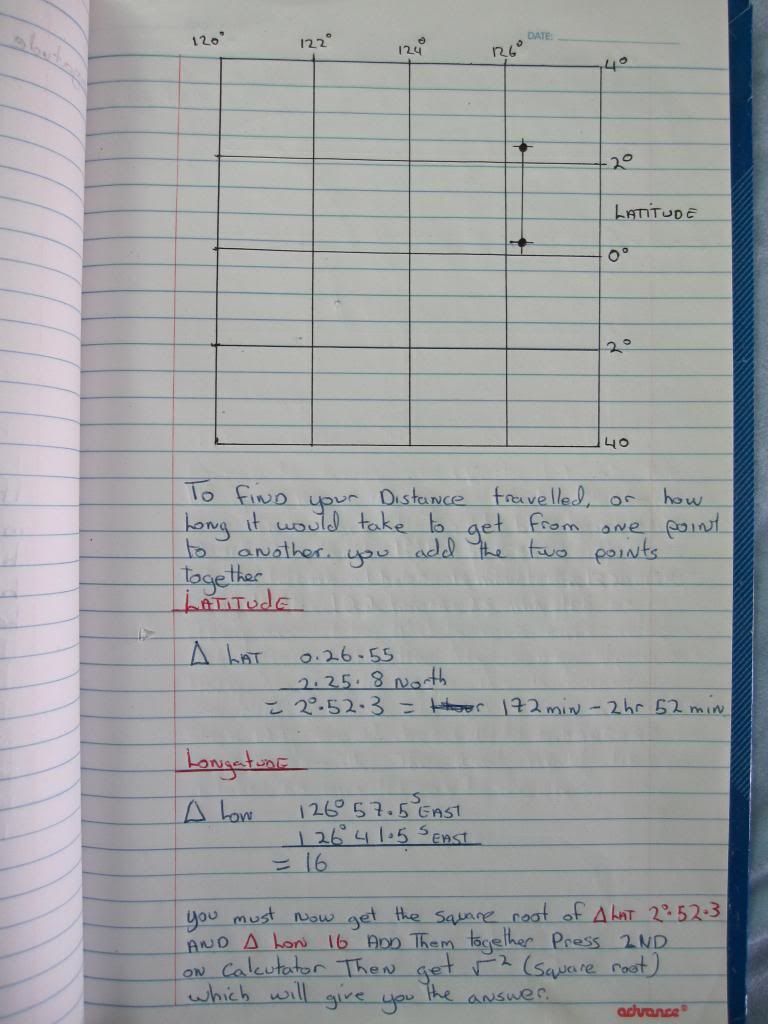 DATE:
120° 122° 124° 126°
4°
2°
LATITUDE
0°
2°
40
To FIND your Distance travelled, or how
Long it would take to get From one point
to another. you add the two points
together
LATITUDE
Δ LAT 0.26.55
2.25.8 North
= 2°.52.3 = 172 min - 2 hr 52 min
LongatuDE
Δ Lon 126° 57.5 S EAST
126° 41.5 S EAST
= 16
you must Now get the square root of Δ LAT 2°.52.3
AND Δ Lon 16 ADD Them together Press 2ND
on Calcutator Then get √² (square root)
which will give you the answer.
advance